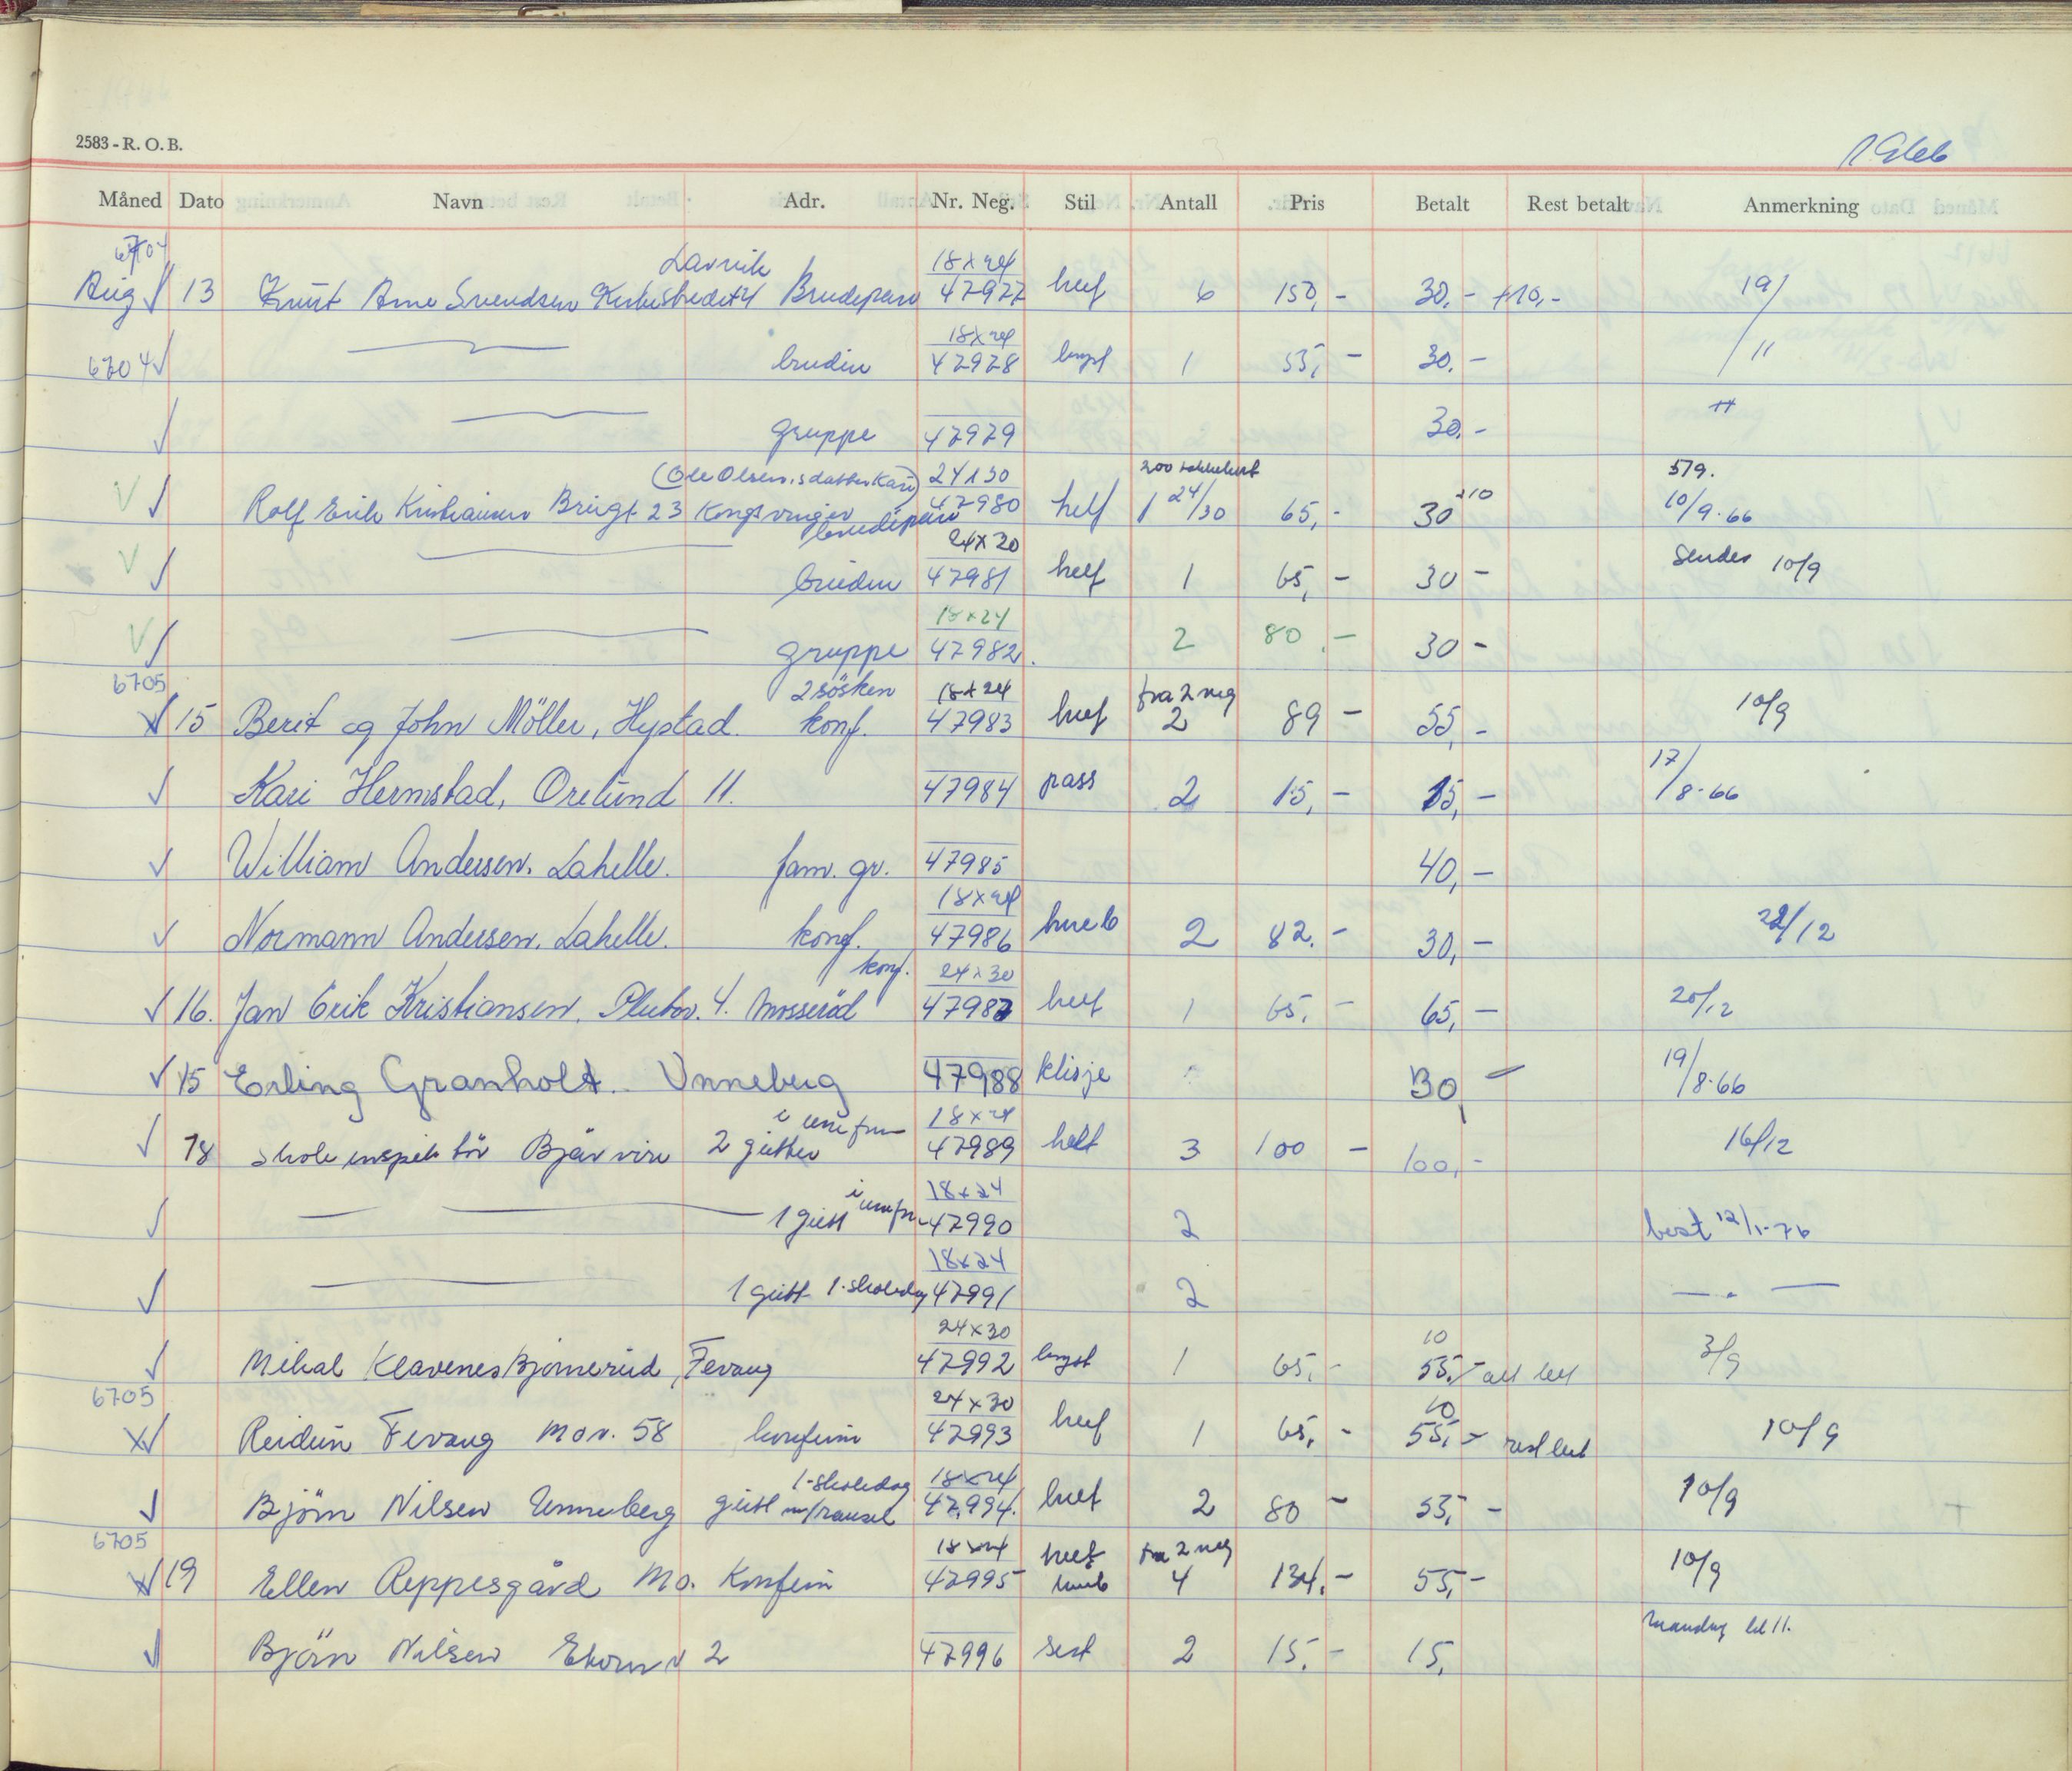 2583 - R. O. B.
Måned Dato Navn Adr. Nr. Neg. Stil Antall Pris Betalt Rest betalt Anmerkning
6704 Larvik 18x24
Aug 13 Knut Arne Svendsen Brudepar 47977 helf 6 150,- 30,- +10,- 19/
18x24
6704 bruden 47978 1 55,- 30,- /11
gruppe 47979 30,-
(Ole Olsens datter Kari) 24x30 5/9.
Rolf Erik Kristiansen Brugt 23 Kongsvinger brudepar 47980 helf 1 24/30 65,- 30 +10 10/9.66
24x30
bruden 47981 helf 1 65,- 30 - Sendes 10/9
18x24
gruppe 47982. 2 80,- 30 -
6705 2 sösken 18x24 fra 2 neg
15 Berit og John Möller, Hystad. konf. 47983 helf 2 89 - 55,- 10/9
Kari Hermstad, Orelund 11. 47984 pass 2 15,- 15,- 17/8-66
William Andersen. Lahelle. fam. gr. 47985 40,-
18x24
Normann Andersen. Lahelle. konf. 47986 2 82.- 30,- 22/12
konf. 24x30
16. Jan Erik Kristiansen, Plutov. 4. Mosseröd 47987 helf 1 65,- 65,- 20/12
15 Erling Granholt. Unneberg 47988 klisje 30 - 19/8-66
i uniform 18x24
18 skoleinspektör Bjärvire 2 gutter 47989 helt 3 100 - 100,- 16/12
i uniform 18x24
1 gutt 47990 2 best 12/1-76
18x24
1 gutt 1. skoledag 47991 2 — . —
24x30 10
Mikal Klavenes Bjornerud, Fevang 47992 1 65,- 55.- alt bet 3/9
6705 24x30 10
Reidun Fevang Mov. 58 konfirm 47993 helf 1 65,- 55,- rest bet 10/9
1. skoledag 18x24
Björn Nilsen Unneberg gutt m/ransel 47994. helf 2 80 - 55,- 10/9
6705 18x24 helf fra 2 neg
19 Ellen Reppesgård Mo. Konfirm 47995 4 134.- 55,- 10/9
mandag kl 11.
Björn Nilsen Ekornv 2 47996 2 15.- 15,